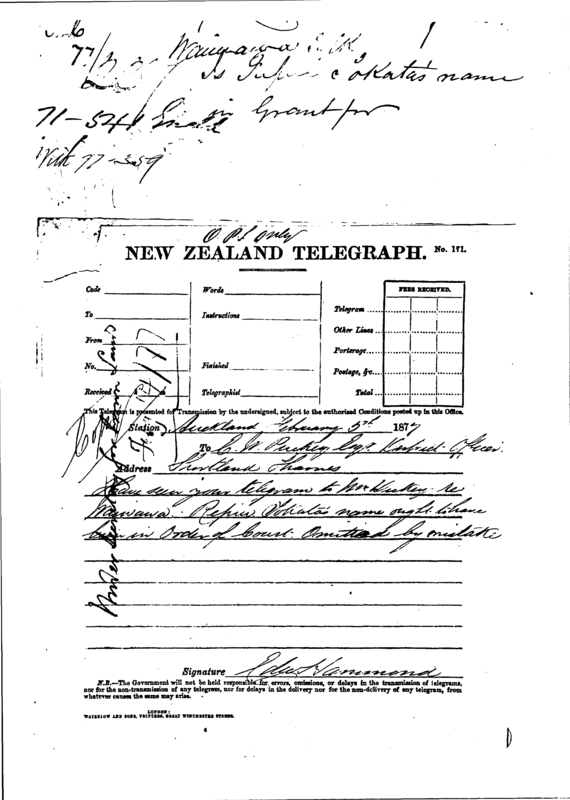 77/
Waiwawa Blk
Is Tokata's name
in Grant for
71-541
With 77-359
O.P.S only
NEW ZEALAND TELEGRAPH. No. 171.
Code
Words
FEES RECEIVED.
To
Instructions
Telegram
Other Lines
From
Porterage
No.
Finished
Postage, &c.
Received
Telegraphist
Total
This Telegram is presented for Transmission by the undersigned, subject to the authorised Conditions posted up in this Office.
Station, Auckland February 5th 1877
To C. W. Puckey Esqr Officer
Address Shortland Thames
Have seen your telegram to Mackay re
Waiwawa. Repiu Tokata's name ought to have
been in Order of Court. Omitted by mistake
Under
Signature Edw Hammond
N.B.—The Government will not be held responsible for errors, omissions, or delays in the transmission of telegrams,
nor for the non-transmission of any telegram, nor for delays in the delivery nor for the non-delivery of any telegram, from
whatever causes the same may arise.
LONDON:
WATERLOW AND SONS, PRINTERS, GREAT WINCHESTER STREET.